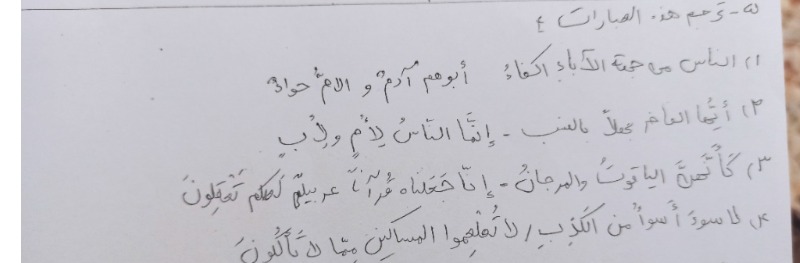 ۵- ترجم هذه العبارات ؛
۱) الناس من جهة الآباءِ اکفاءُ أبوهم آدمٌ و الامُّ حواءُ
۲) أیُّها الفاخر جهلاً بالنسب - إنَّما النّاسُ لِأُمٍ ولِأبٍ
۳) کَأنَّهُنَّ الیاقوتُ والمرجانُ - إنّا جَعَلناه قُرآناً عربیّاً لَعلکم تَعْقِلونَ
۴) لا سوءَ أسوأُ من الکَذِبِ / لا تُطْعِموا المساکینَ مِمّا لا تَأکُلونَ